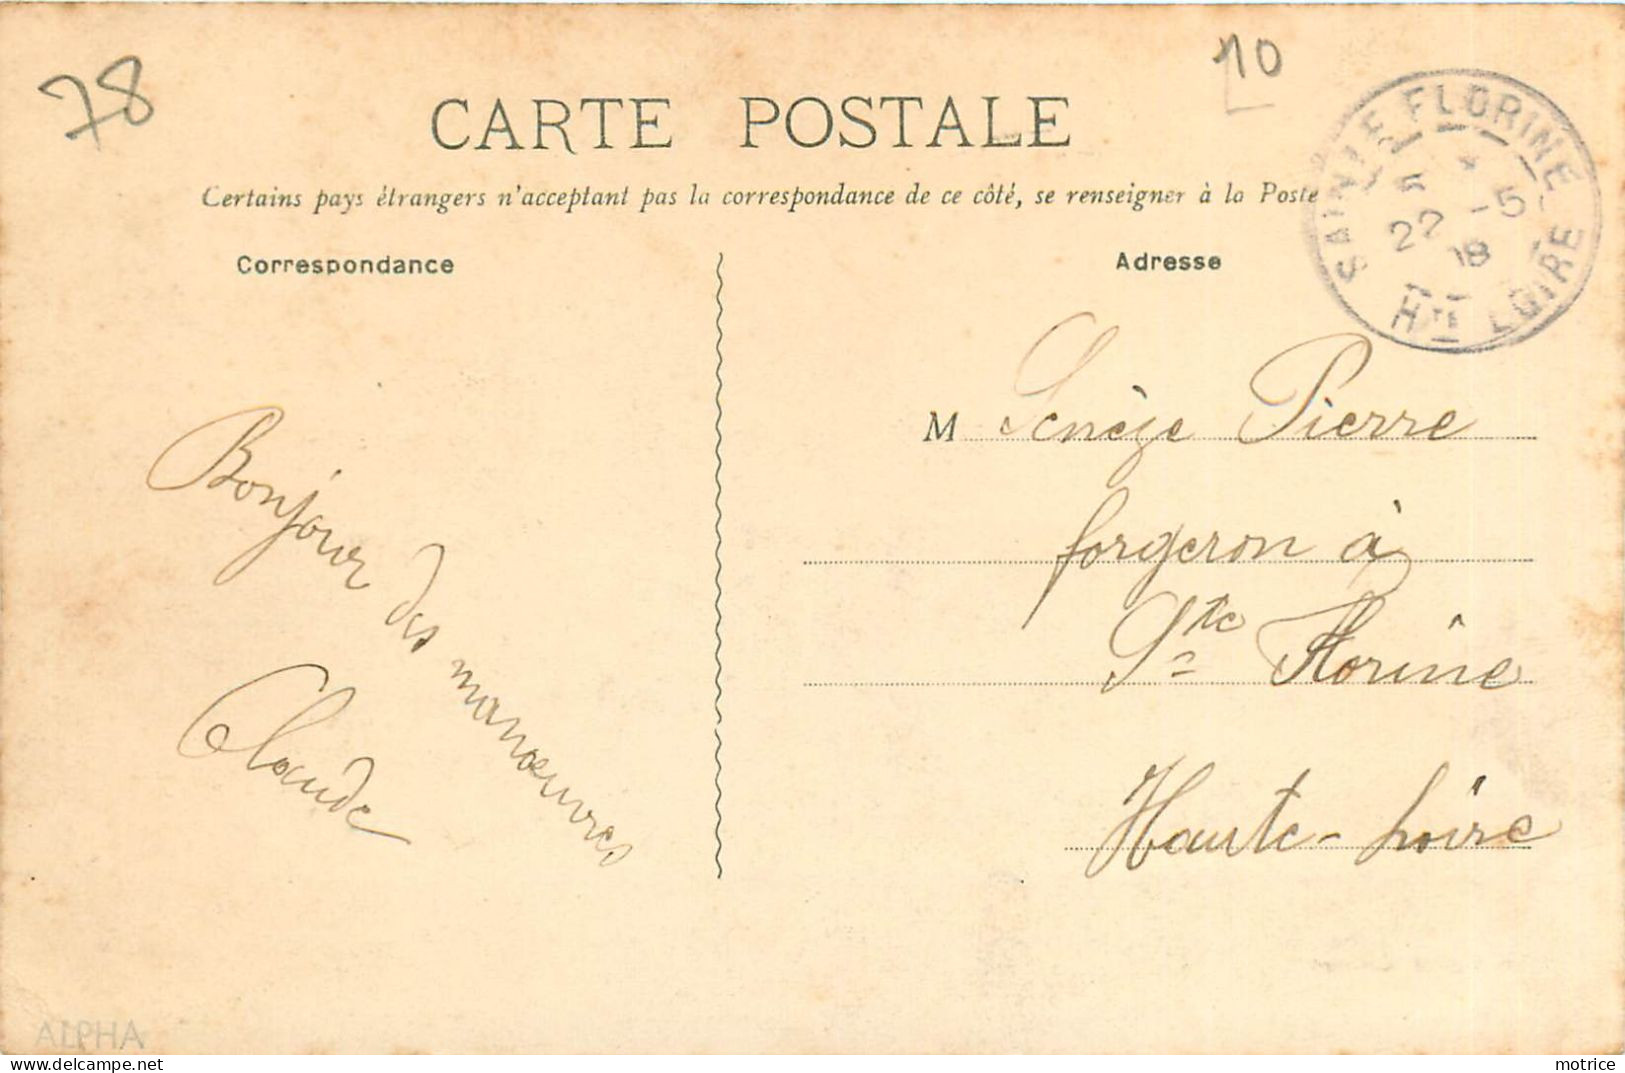 78
10
CARTE POSTALE
Certains pays étrangers n'acceptant pas la correspondance de ce côté, se renseigner à la Poste
SAINTE FLORINE
22 -5
08
Hte LOIRE
Correspondance
Adresse
Bonjour des manœuvres
Claude
M Senèze Pierre
forgeron à
Ste Florine
Haute-Loire
ALPHA
motrice